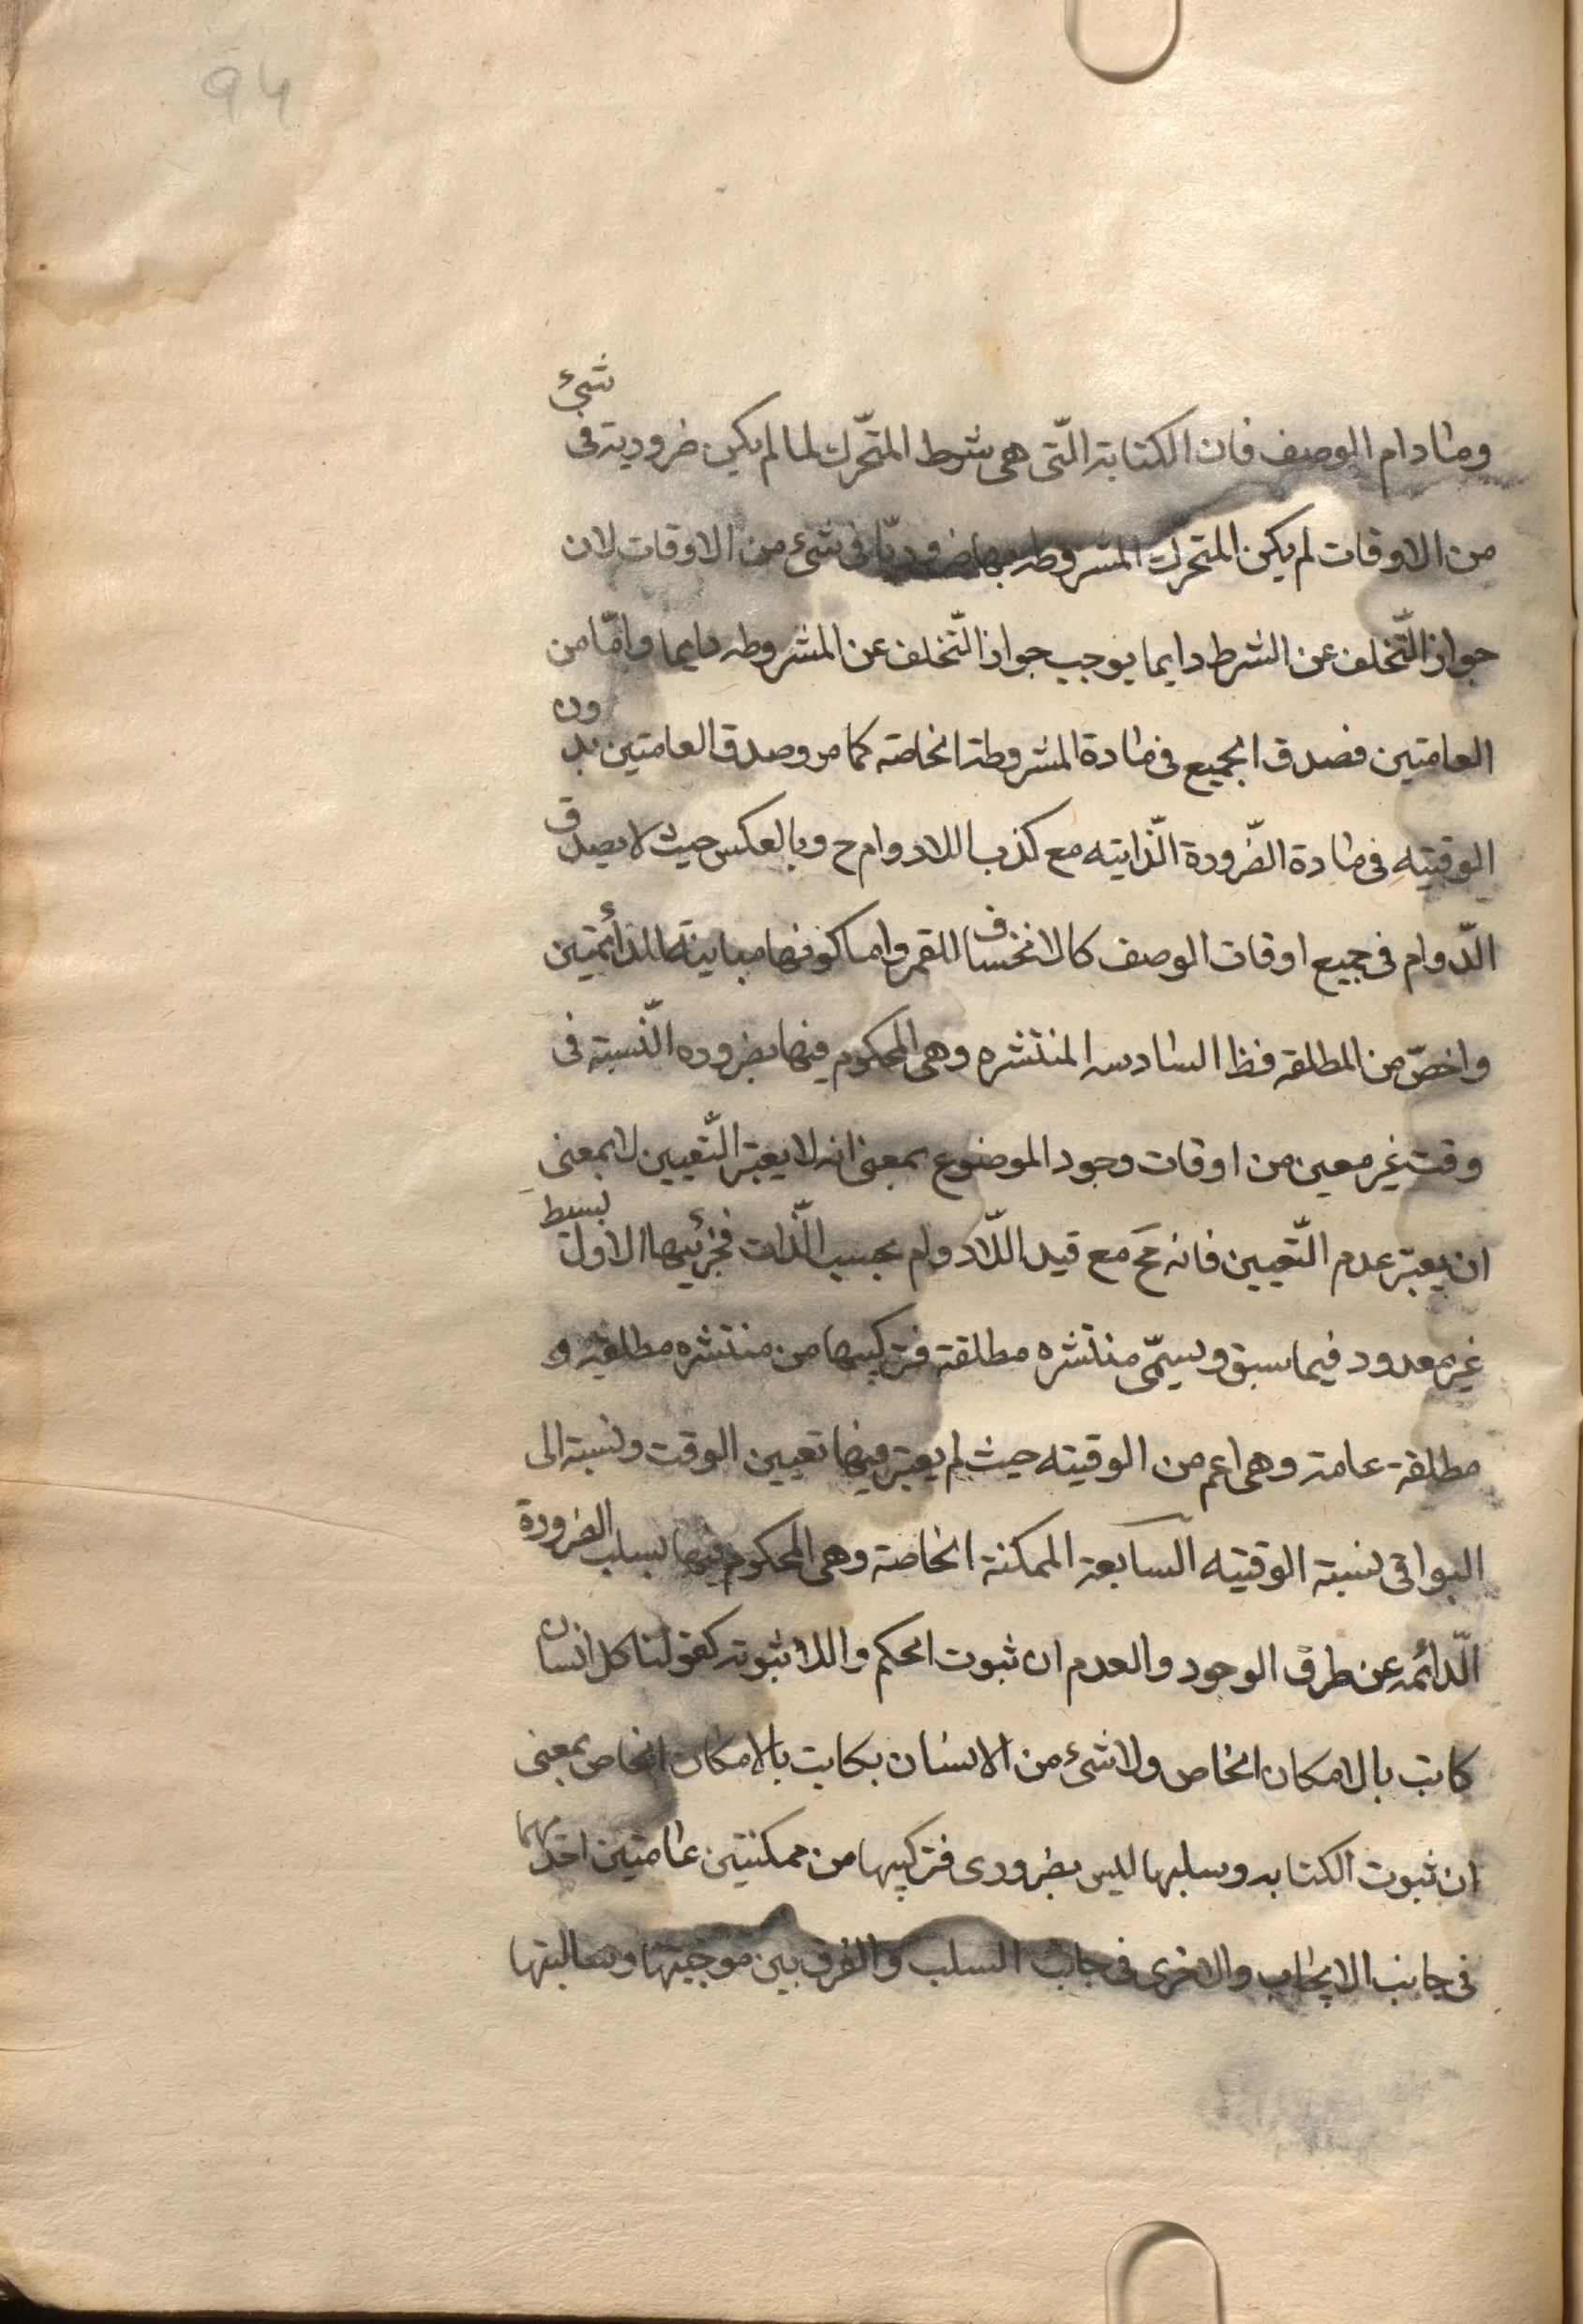 94
وما دام الوصف فان الكتابة الّتى هى شرط المتحّرك لما لم يكن ضرورية فى شىء
من الاوقات لم يكن المتحرك المشروطه بها ضروريّا فى شىء من الاوقات لان
جواز التّخلف عن الشرط دايما يوجب جواز التّخلف عن المشروطه دايما وامّا من
العامتين فصدق الجميع فى مادة المشروطة الخاصه كما مر وصدق العامتين بدون
الوقتيه فى مادة الضّرورة الذّاتيه مع كذب اللادوام ح وبالعكس حيث لا يصدق
الدّوام فى جميع اوقات الوصف كالانخساف للقمر واما كونها مباينة للدائمتين
واخصّ من المطلقه فظ السادسه المنتشره وهى المحكوم فيها بضروره النّسبة فى
وقت غير معين من اوقات وجود الموضوع بمعنى انه لا يعتبر التّعيين لا بمعنى
ان يعتبر عدم التّعيين فانه مح مع قيد اللّادوام بحسب الذّات فجزئيها الاول بسيط
غير معدود فيما سبق ويسمّى منتشره مطلقة فتركيبها من منتشره مطلقه و
مطلقة عامة وهى اعم من الوقتيه حيث لم يعتبر فيها تعيين الوقت ونسبة الى
البواقى نسبة الوقتيه السابعة الممكنة الخاصة وهى المحكوم فيها بسلب الضرورة
الّدائمه عن طرق الوجود والعدم ان ثبوت الحكم واللاثبوته كقولنا كل انسان
كاتب بالامكان الخاص ولا شىء من الانسان بكاتب بالامكان الخاص بمعنى
ان ثبوت الكتابه وسلبها ليس بضرورى فتركيبها من ممكنتين عامتين احدهما
فى جانب الايجاب والاخرى فى جانب السلب والفرق بين موجبتها وسالبتها